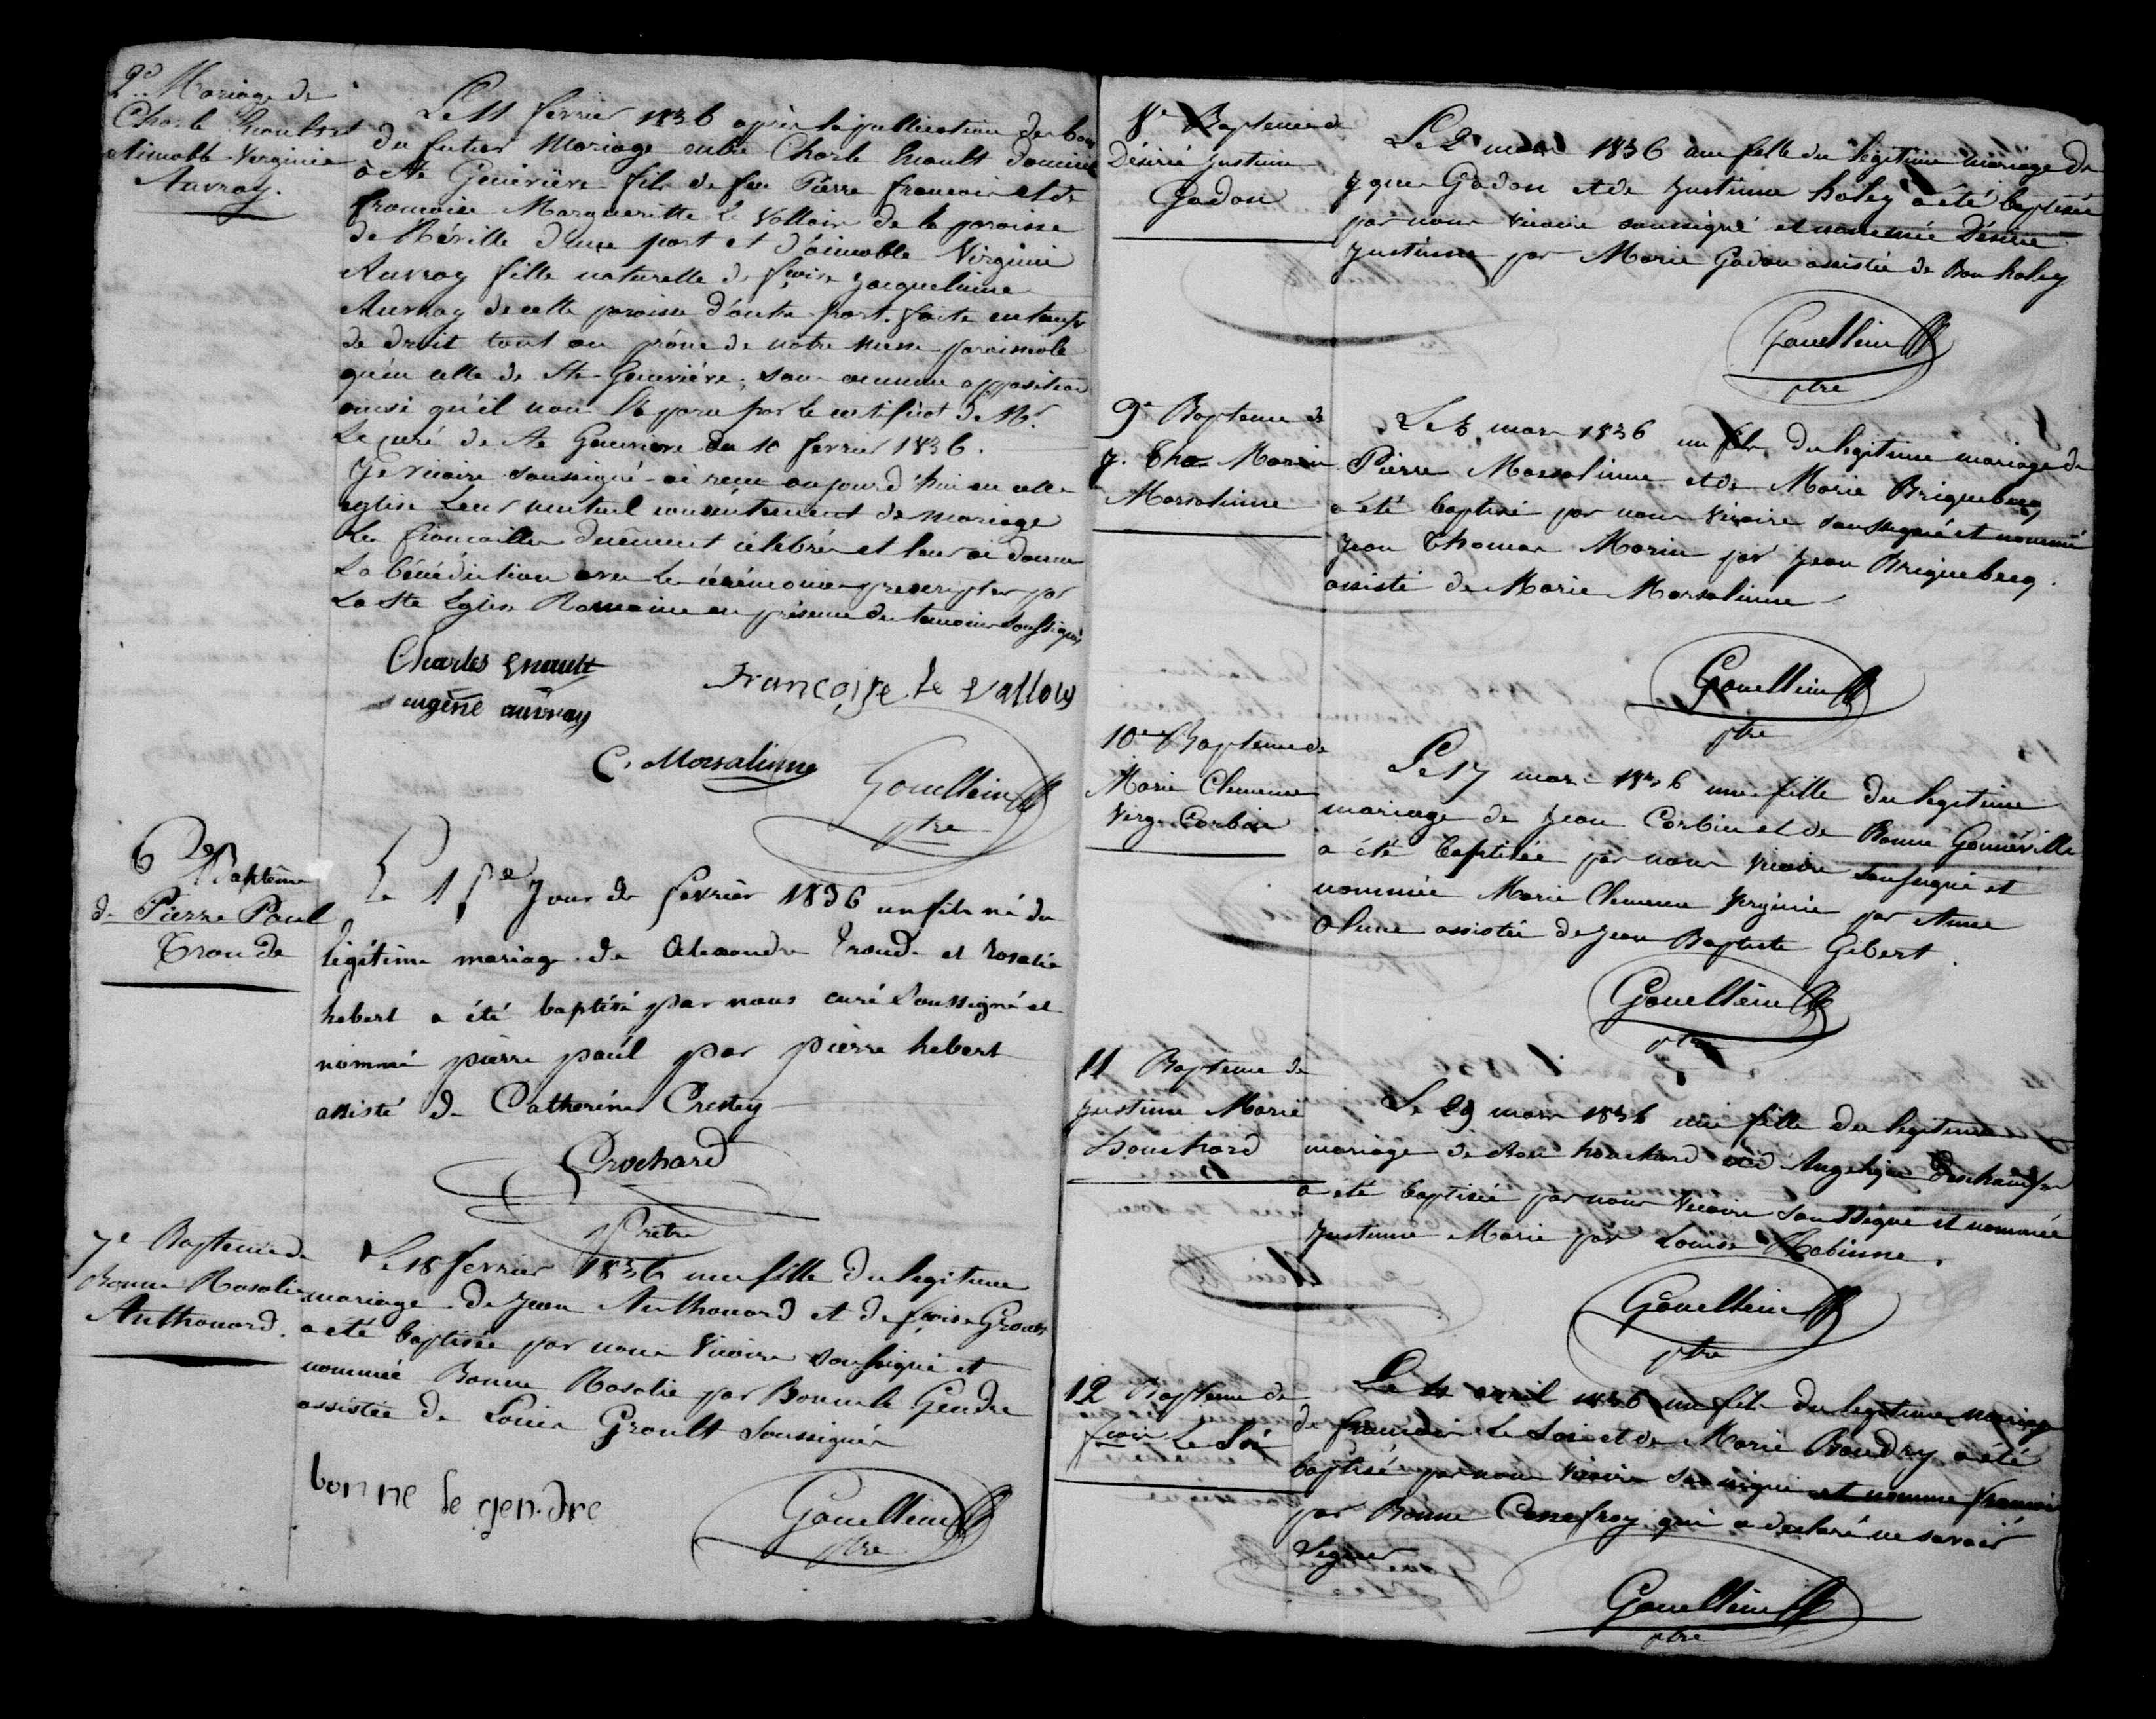 2d. Mariage de
Charle Enault et
Aimable Verginie
Auvray.
Le 11 fevrier 1836 après la publication des bans
du futur Mariage entre Charle Enault domicilié
à Ste Geneviève fils de feu Pierre francois et de
francoise Margueritte Le Vallois de la paroisse
de Réville d'une part et d'aimable Virginie
Auvray fille naturelle de fçoise Jacqueleine
Auvray de cette paroisse d'autre part. faite en temps
de droit tant au prône de notre messe paroissiale
qu'en celle de Ste Geneviève; sans aucune opposition
ainsi qu'il nous a paru par le certificat de Mr.
Le curé de Ste Geneviève du 10 fevrier 1836.
Je vicaire soussigné ai reçu aujourd'hui en cette
eglise leur mutuel consentement de mariage
Les fiancailles duement célébrés et leur ai donné
La bénédiction avec les cérémonies prescriptes par
La Ste Eglise Romaine en présence des temoins soussignés
Charles Enault
Francoise le vallois
eugène auvray
C. Marsalinne
Gouellein
ptre
6e Baptême
de Pierre Paul
Troude
Le 15e Jour de fevrier 1836 un fils né du
légitime mariage de Alexandre Troude et rosalie
hebert a été baptisé par nous curé soussigné et
nommé pierre paul par pierre hebert
assisté de Catherine Crestey
Crochard
Prêtre
7e Bapteme de
Bonne Rosalie
Anthouard.
Le 18 fevrier 1836 une fille du legitime
mariage de Jean Anthouard et de fçoise Groult
a été baptisée par nous Vicaire soussigné et
nommée Bonne Rosalie par Bonne le Gendre
assistée de Louis Groult soussignés
bonne le gendre
Gouellein
ptre
8e Bapteme de
Désirée Justine
Gadon
Le 2 mars 1836 une fille du légitime mariage de
Jque Gadon et de Justinne haley a été baptisée
par nous vicaire soussigné et nommée Désirée
Justinne par Marie Gadon assistée de Bon haley
Gouellein
ptre
9e Bapteme de
J. Thas Marin
Marsalinne
Le 3 mars 1836 un fils du legitime mariage de
Pierre Marsalinne et de Marie Briquebecq
a été baptisé par nous vicaire soussigné et nommé
Jean Thomas Marin par Jean Briquebecq.
assisté de Marie Marsalinne
Gouellein
ptre
10e Bapteme de
Marie Clemence
Virg. Corbin
Le 17 mars 1836 une fille du legitime
mariage de Jean Corbin et de Bonne Gonnéville
a été baptisée par nous vicaire soussigné et
nommée Marie Clemence Verginie par Anne
assistée de Jean Baptiste Gibert.
Gouellein
ptre
11 Bapteme de
Justinne Marie
houchard
Le 29 mars 1836 une fille du legitime
mariage de Bon houchard Angelique Deschamps
a été baptisée par nous vicaire soussigné et nommée
Justinne Marie par Louise Mabinne.
Gouellein
ptre
12 Bapteme de
fçois Le Soi
Le 4 avril 1836 un fils du legitime mariage
de francois Le Soi et de Marie Baudry a été
baptisé par nous vicaire soussigné et nommé francois
par Bonne qui a declaré ne savoir
signer
Gouellein
ptre